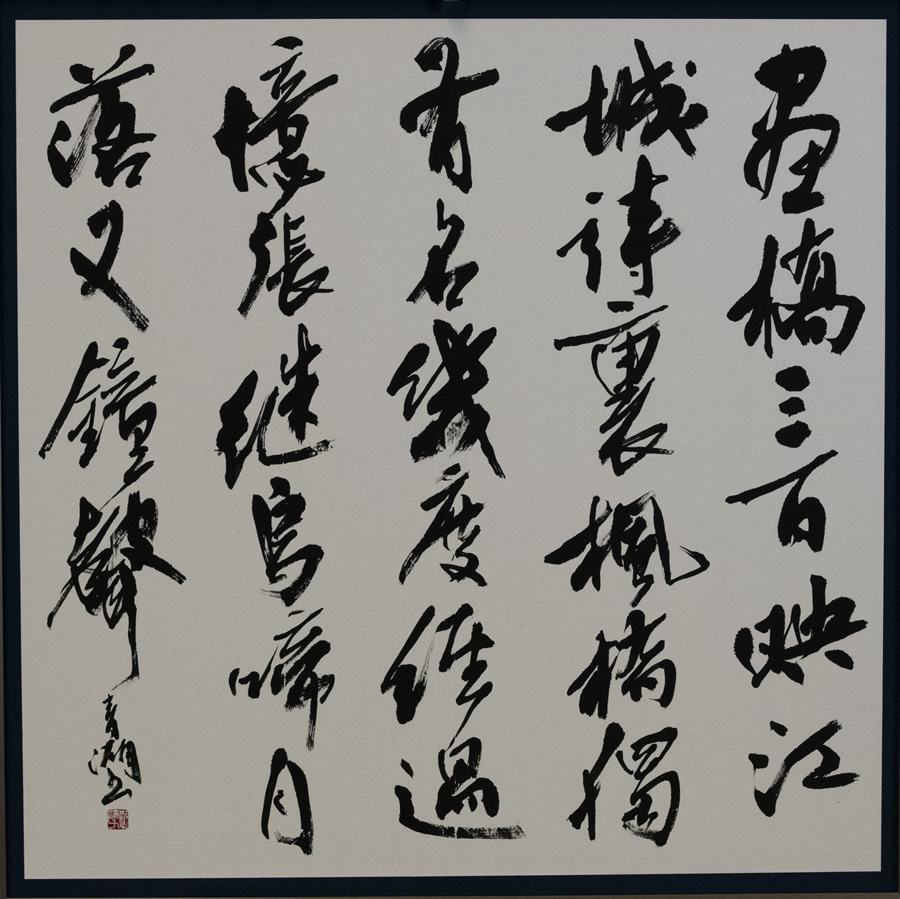 畫橋三百映江
城詩裏楓橋獨
有名幾度經過
憶張继烏啼月
落又鐘聲
青湖书